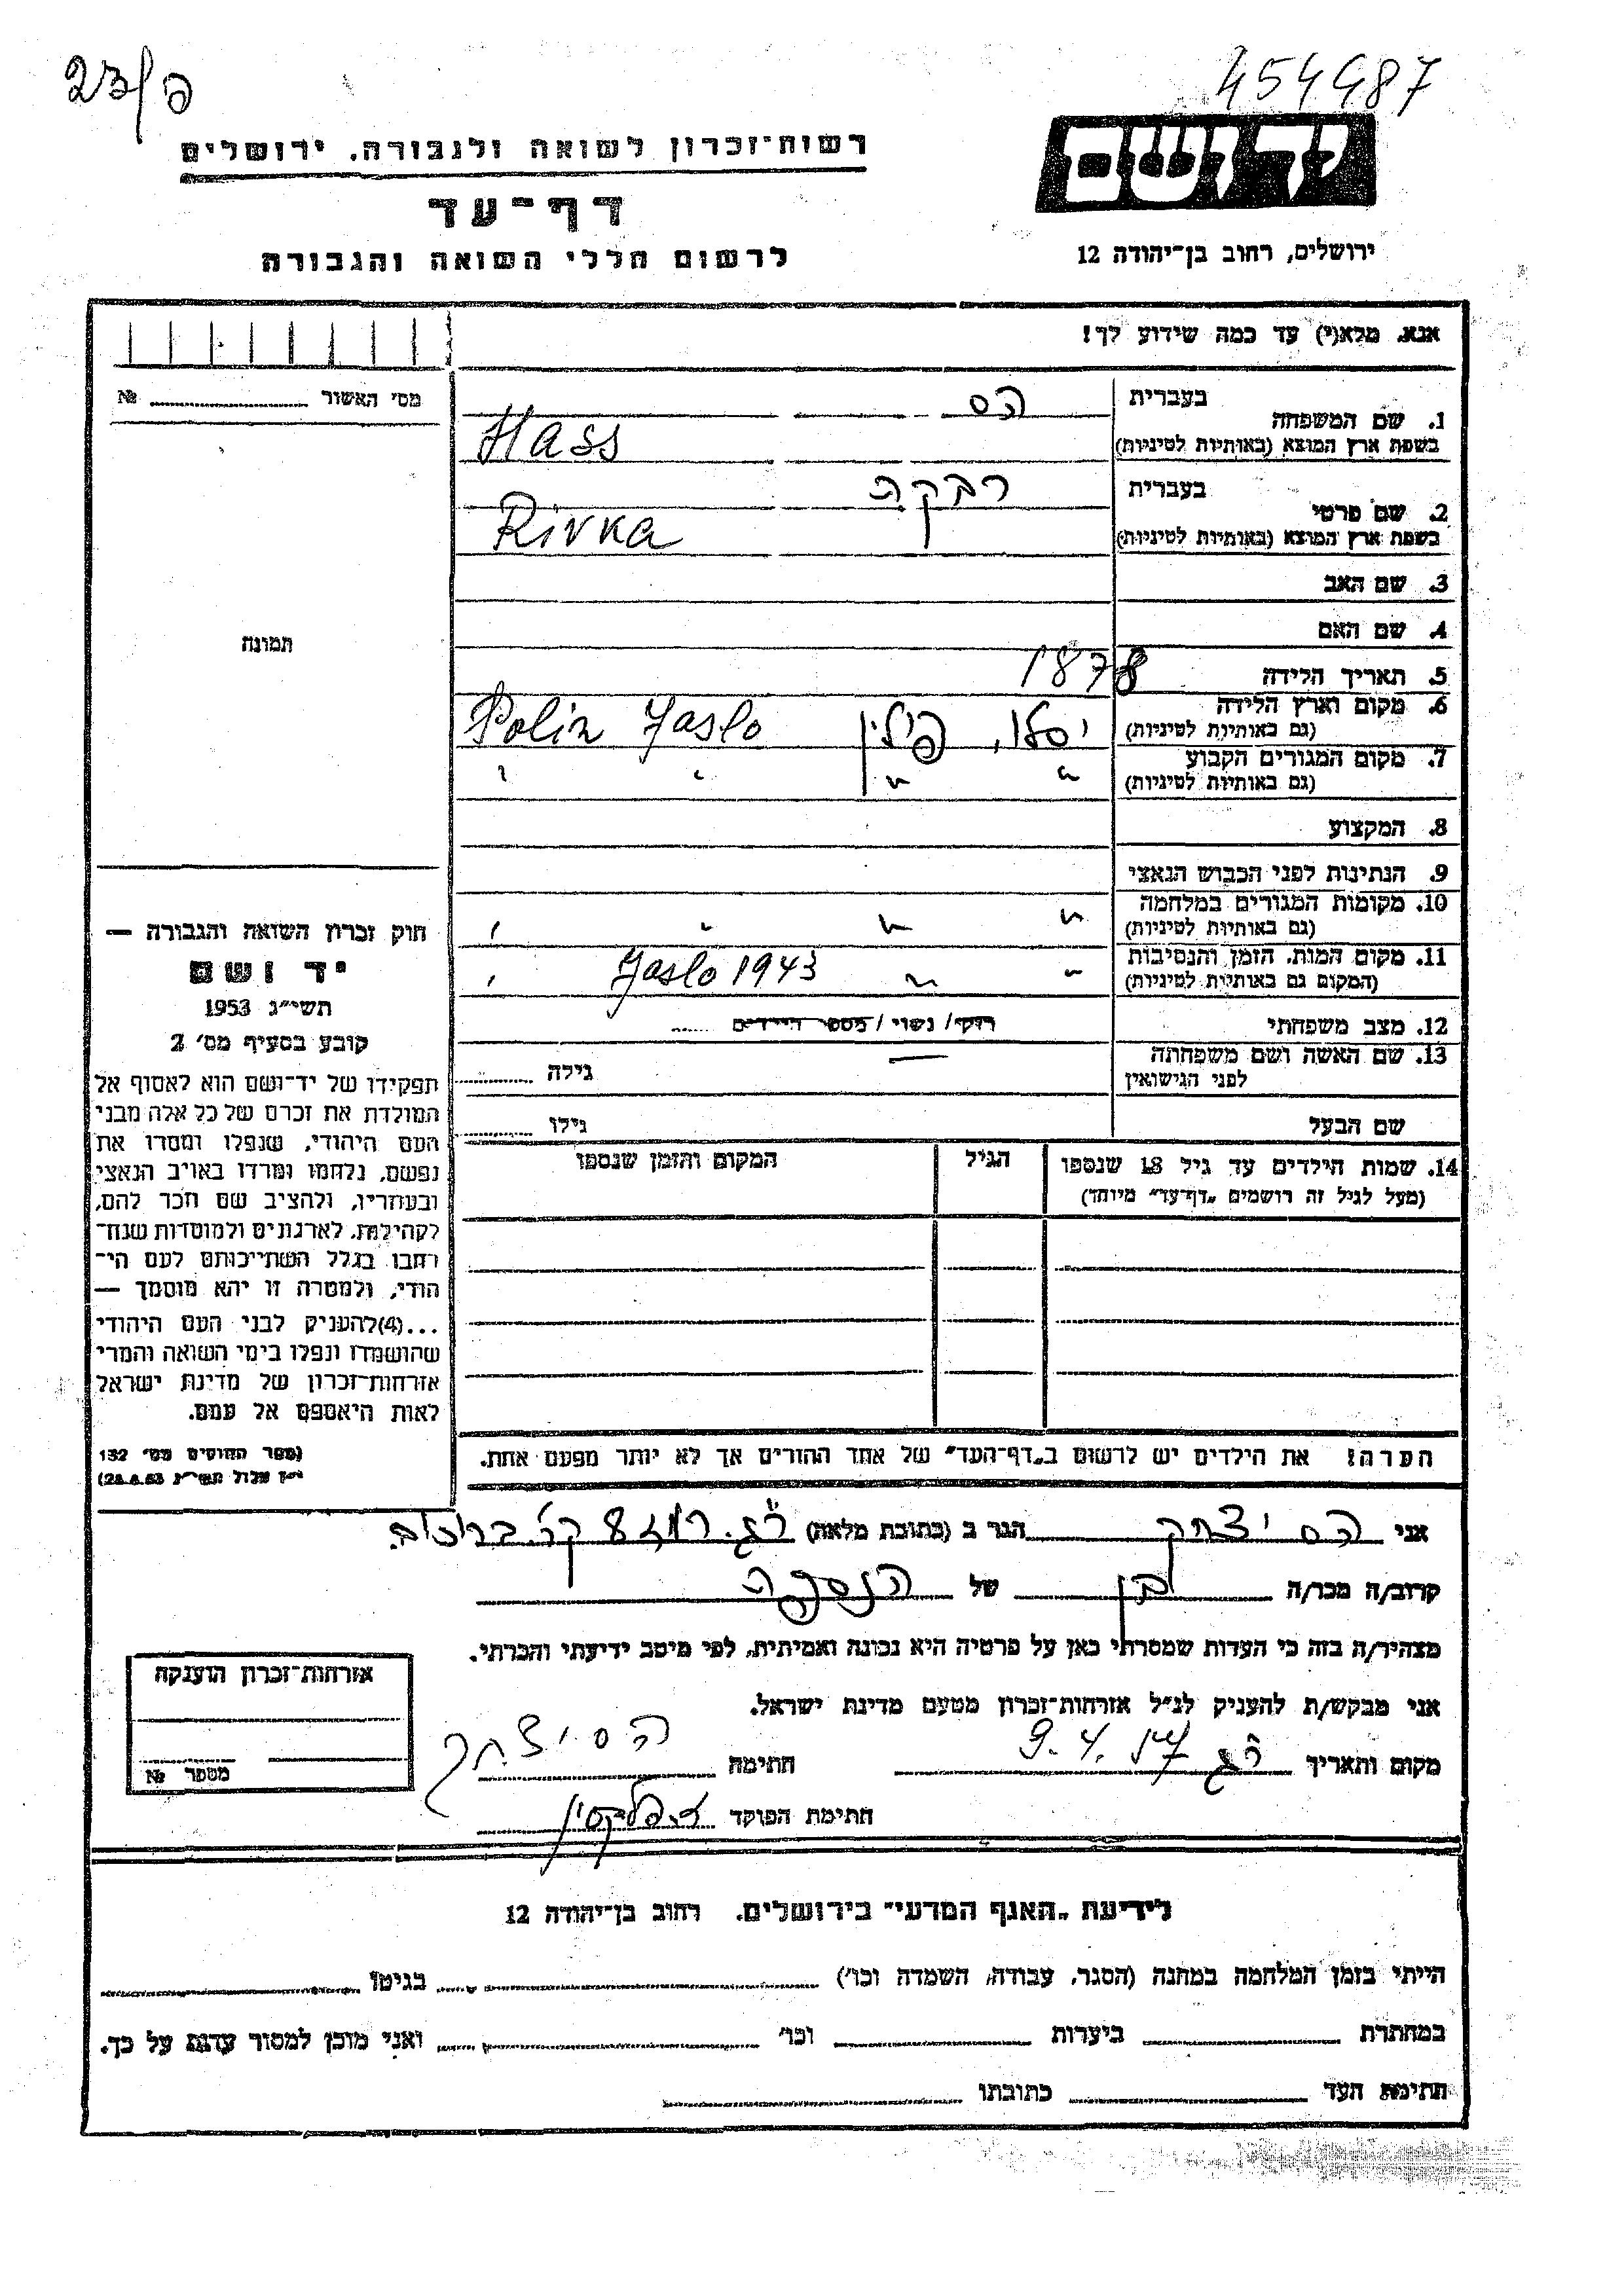 23/פ
454487
רשות-זכרון לשואה ולגבורה, ירושלים
יד ושם
דף-עד
לרשום חללי השואה והגבורה
ירושלים, רחוב בן-יהודה 12
אנא, מלא(י) עד כמה שידוע לך!
מס׳ האשור № 
1. שם המשפחה
בעברית הס
בשפת ארץ המוצא (באותיות לטיניות) Hass
2. שם פרטי
בעברית רבקה
בשפת ארץ המוצא (באותיות לטיניות) Rivka
3. שם האב
4. שם האם
תמונה
5. תאריך הלידה 1878
6. מקום וארץ הלידה
(גם באותיות לטיניות) יסלו, פולין Polin Jaslo
7. מקום המגורים הקבוע
(גם באותיות לטיניות) " " " "
8. המקצוע
9. הנתינות לפני הכבוש הנאצי
10. מקומות המגורים במלחמה
(גם באותיות לטיניות) " " " "
11. מקום המות, הזמן והנסיבות
(המקום גם באותיות לטיניות) " " Jaslo 1943 "
12. מצב משפחתי רווק/ נשוי/ מספר הילדים
13. שם האשה ושם משפחתה
לפני הנישואין — גילה
שם הבעל גילו
14. שמות הילדים עד גיל 18 שנספו
(מעל לגיל זה רושמים „דף-עד" מיוחד)
הגיל
המקום והזמן שנספו
חוק זכרון השואה והגבורה —
יד ושם
תשי״ג 1953
קובע בסעיף מס׳ 2
תפקידו של יד-ושם הוא לאסוף אל
המולדת את זכרם של כל אלה מבני
העם היהודי, שנפלו ומסרו את
נפשם, נלחמו ומרדו באויב הנאצי
ובעוזריו, ולהציב שם וזכר להם,
לקהילות, לארגונים ולמוסדות שנח-
רבו בגלל השתייכותם לעם הי-
הודי, ולמטרה זו יהא מוסמך —
...(4)להעניק לבני העם היהודי
שהושמדו ונפלו בימי השואה והמרי
אזרחות-זכרון של מדינת ישראל
לאות היאספם אל עמם.
(ספר החוקים מס׳ 132
י״ז אלול תשי״ג 28.8.53)
הערה! את הילדים יש לרשום ב„דף-העד" של אחד ההורים אך לא יותר מפעם אחת.
אני הס יצחק הגר ב (כתובת מלאה) ר״ג.
קרוב/ה מכר/ה בן של הנספה
מצהיר/ה בזה כי העדות שמסרתי כאן על פרטיה היא נכונה ואמיתית, לפי מיטב ידיעתי והכרתי.
אני מבקש/ת להעניק לנ״ל אזרחות-זכרון מטעם מדינת ישראל.
מקום ותאריך ר״ג 9.4.57 חתימה הס יצחק
חתימת הפוקד
אזרחות-זכרון הוענקה
מספר №
לידיעת „האגף המדעי" בירושלים, רחוב בן-יהודה 12
הייתי בזמן המלחמה במחנה (הסגר, עבודה, השמדה וכו׳) בגיטו
במחתרת ביערות וכו׳ ואני מוכן למסור עדות על כך.
חתימת העד כתובתו